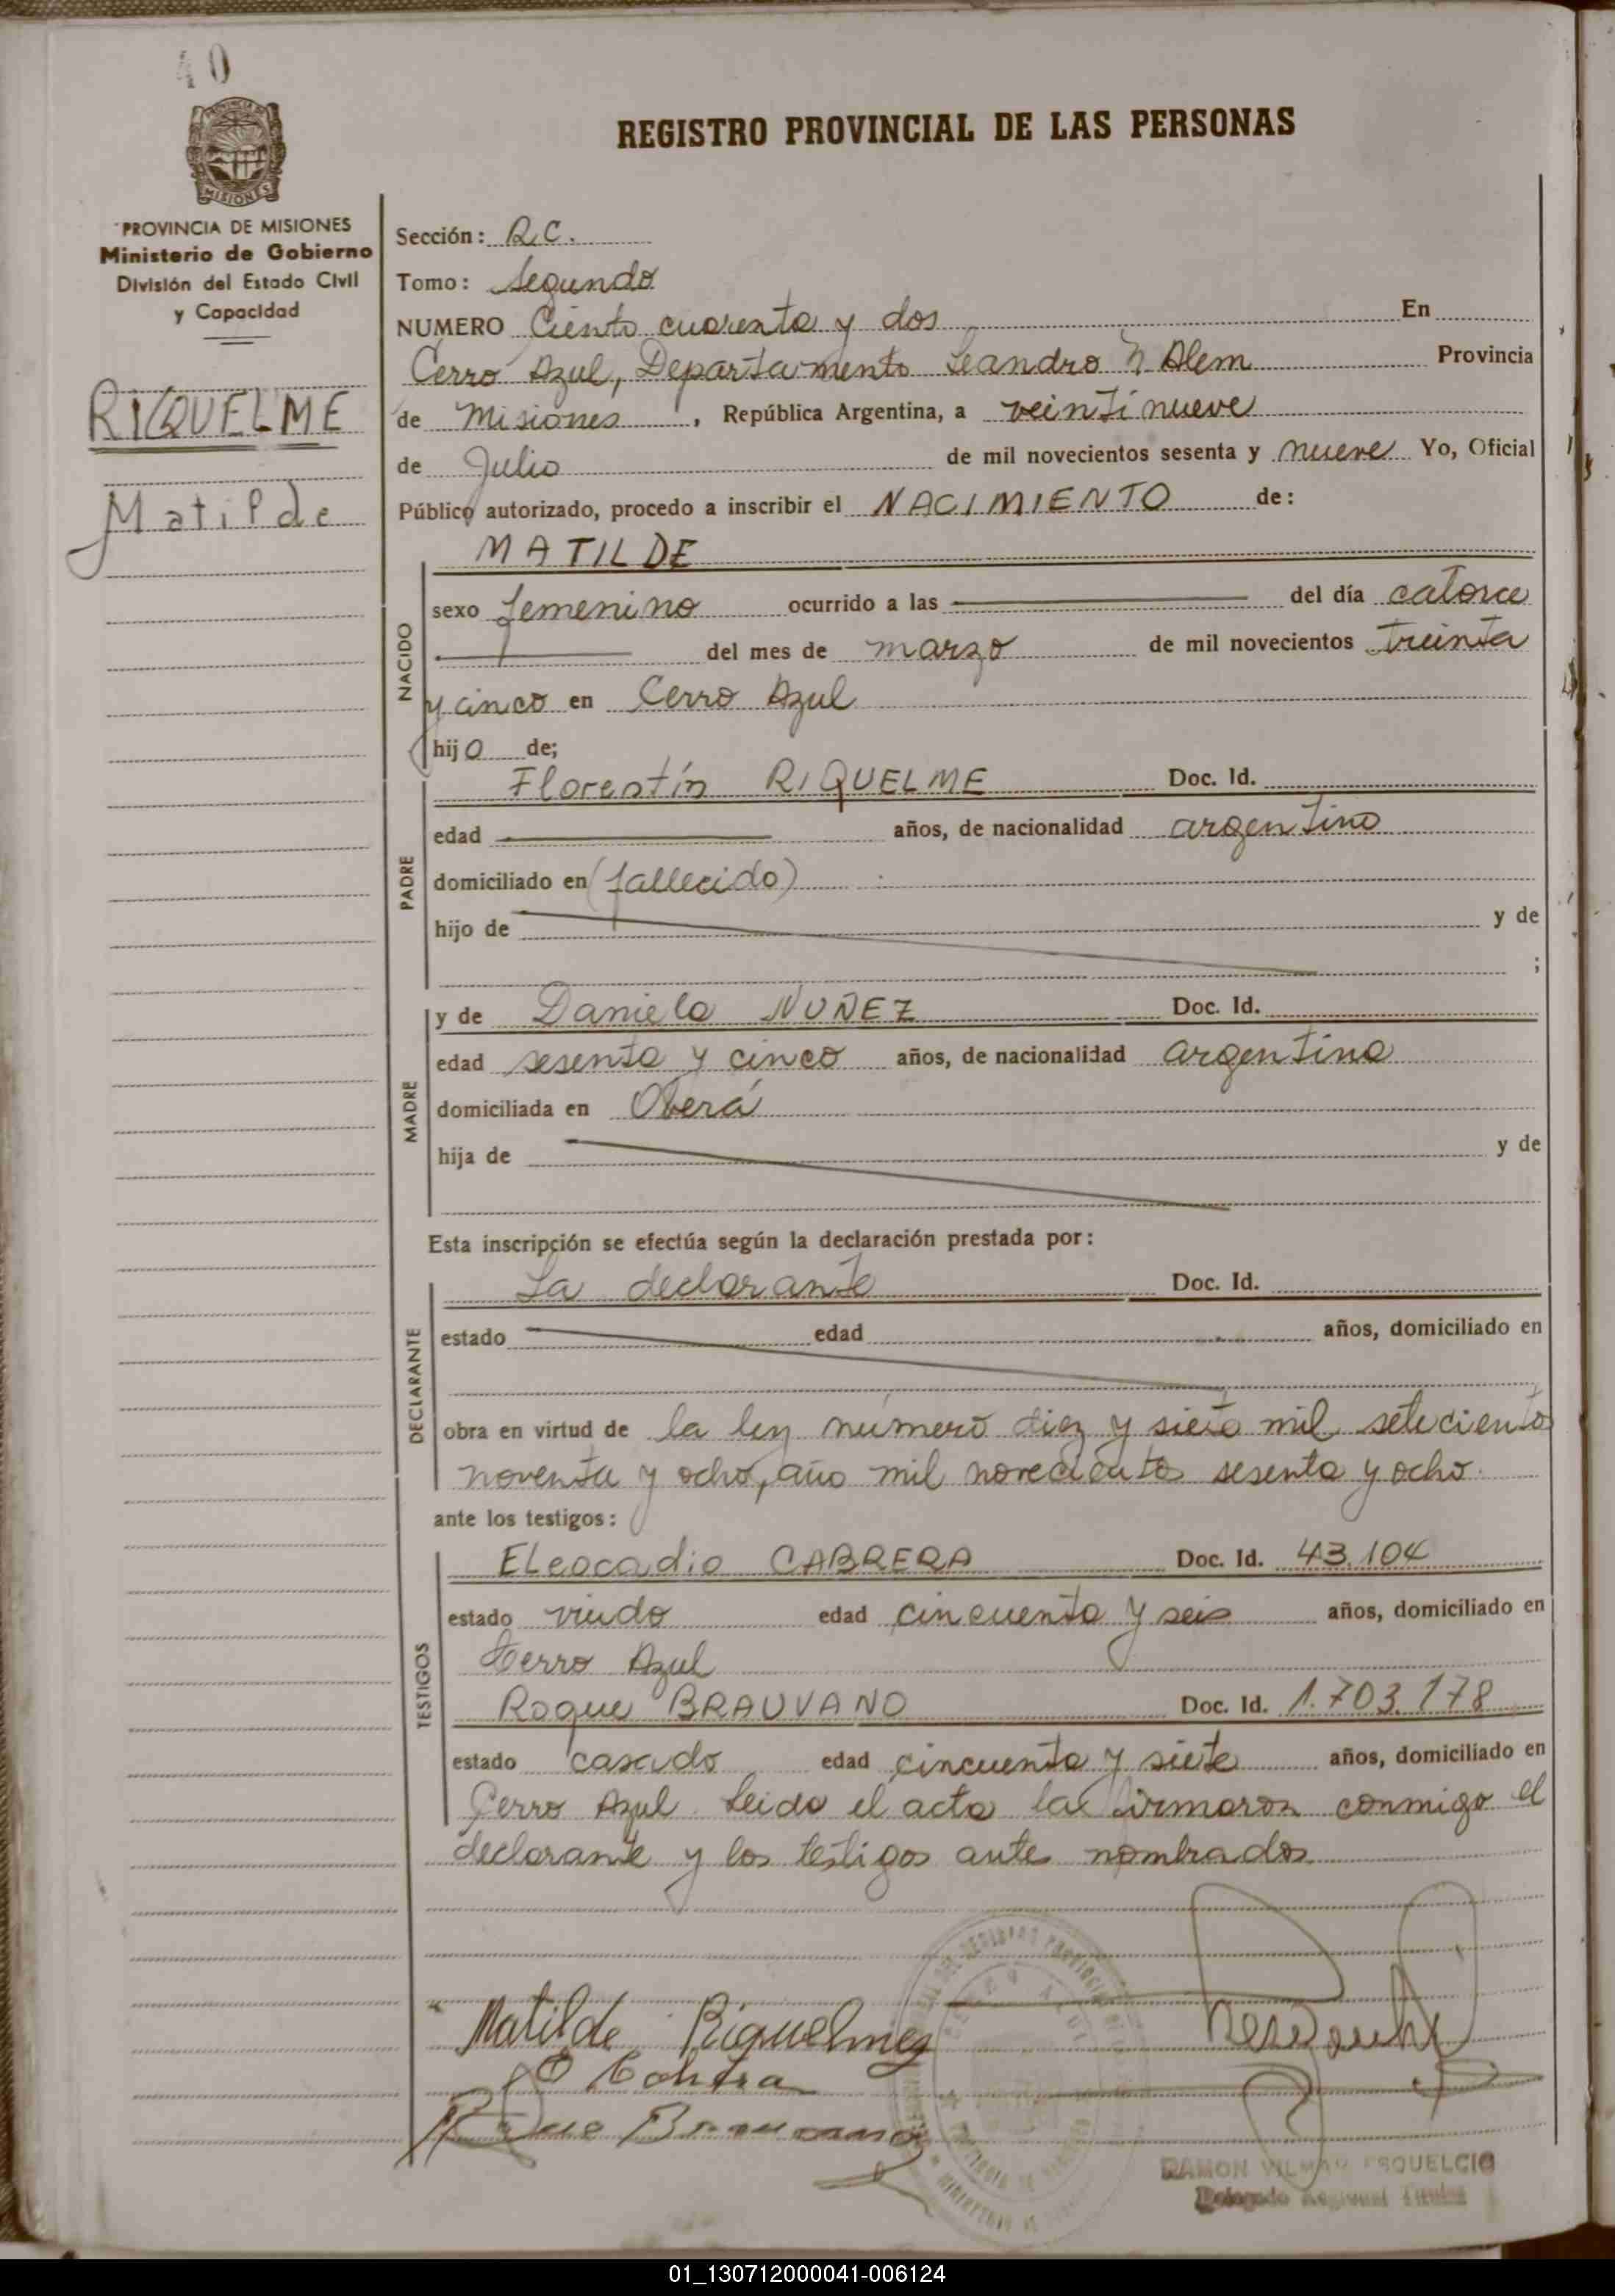 40
REGISTRO PROVINCIAL DE LAS PERSONAS
PROVINCIA DE MISIONES
Ministerio de Gobierno
División del Estado Civil
y Capacidad
RIQUELME
Matilde
Sección: R.C.
Tomo: Segundo
NUMERO Ciento cuarenta y dos En
Cerro Azul, Departamento Leandro N Alem Provincia
de Misiones, República Argentina, a veintinueve
de Julio de mil novecientos sesenta y nueve Yo, Oficial
Público autorizado, procedo a inscribir el NACIMIENTO de:
MATILDE
NACIDO
sexo femenino ocurrido a las del día catorce
del mes de marzo de mil novecientos treinta
y cinco en Cerro Azul
hijo de;
PADRE
Florentín RIQUELME Doc. Id.
edad años, de nacionalidad argentino
domiciliado en (fallecido)
hijo de y de
;
MADRE
y de Daniela NUÑEZ Doc. Id.
edad sesenta y cinco años, de nacionalidad argentina
domiciliada en Oberá
hija de y de
Esta inscripción se efectúa según la declaración prestada por:
DECLARANTE
La declarante Doc. Id.
estado edad años, domiciliado en
obra en virtud de la ley número diez y siete mil setecientos
noventa y ocho, año mil novecientos sesenta y ocho.
ante los testigos:
TESTIGOS
Eleocadio CABRERA Doc. Id. 43.104
estado viudo edad cincuenta y seis años, domiciliado en
Cerro Azul
Roque BRAUVANO Doc. Id. 1.703.178
estado casado edad cincuenta y siete años, domiciliado en
Cerro Azul. Leida el acta la firmaron conmigo el
declarante y los testigos antes nombrados
Matilde Riquelmez
RAMON VILMAR ESQUELCIO
Delegado Regional Titular
01_130712000041-006124